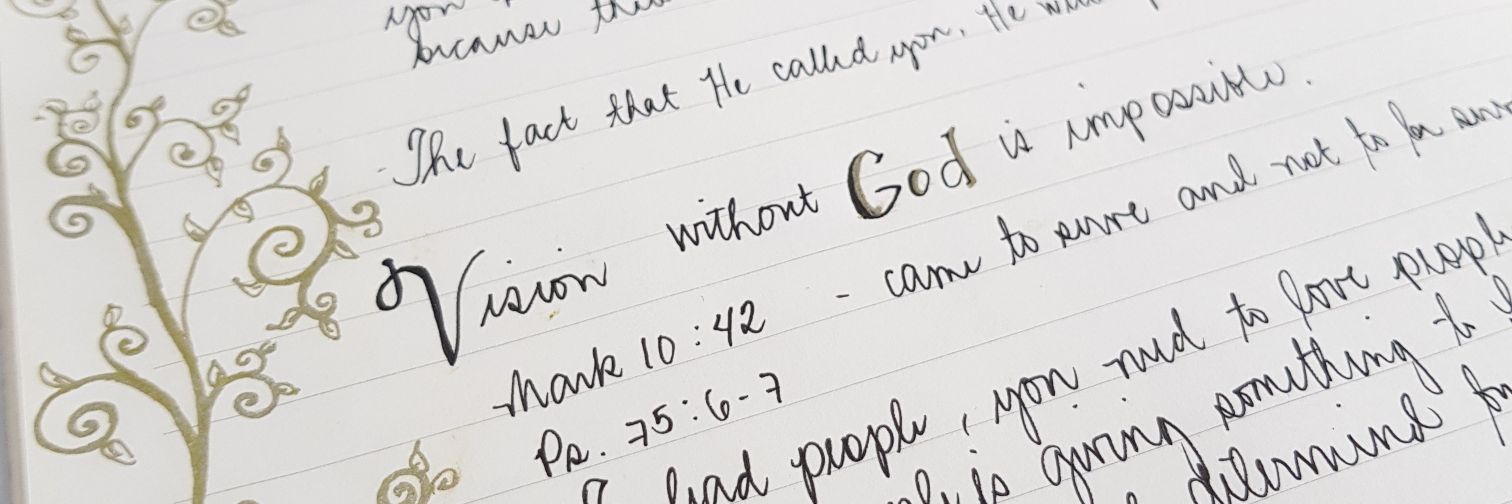 you
because this
- The fact that He called you, He will
Vision without God is impossible.
Mark 10:42 - came to serve and not to be
Ps. 75:6-7
To lead people, you need to love people
is giving something to
determined